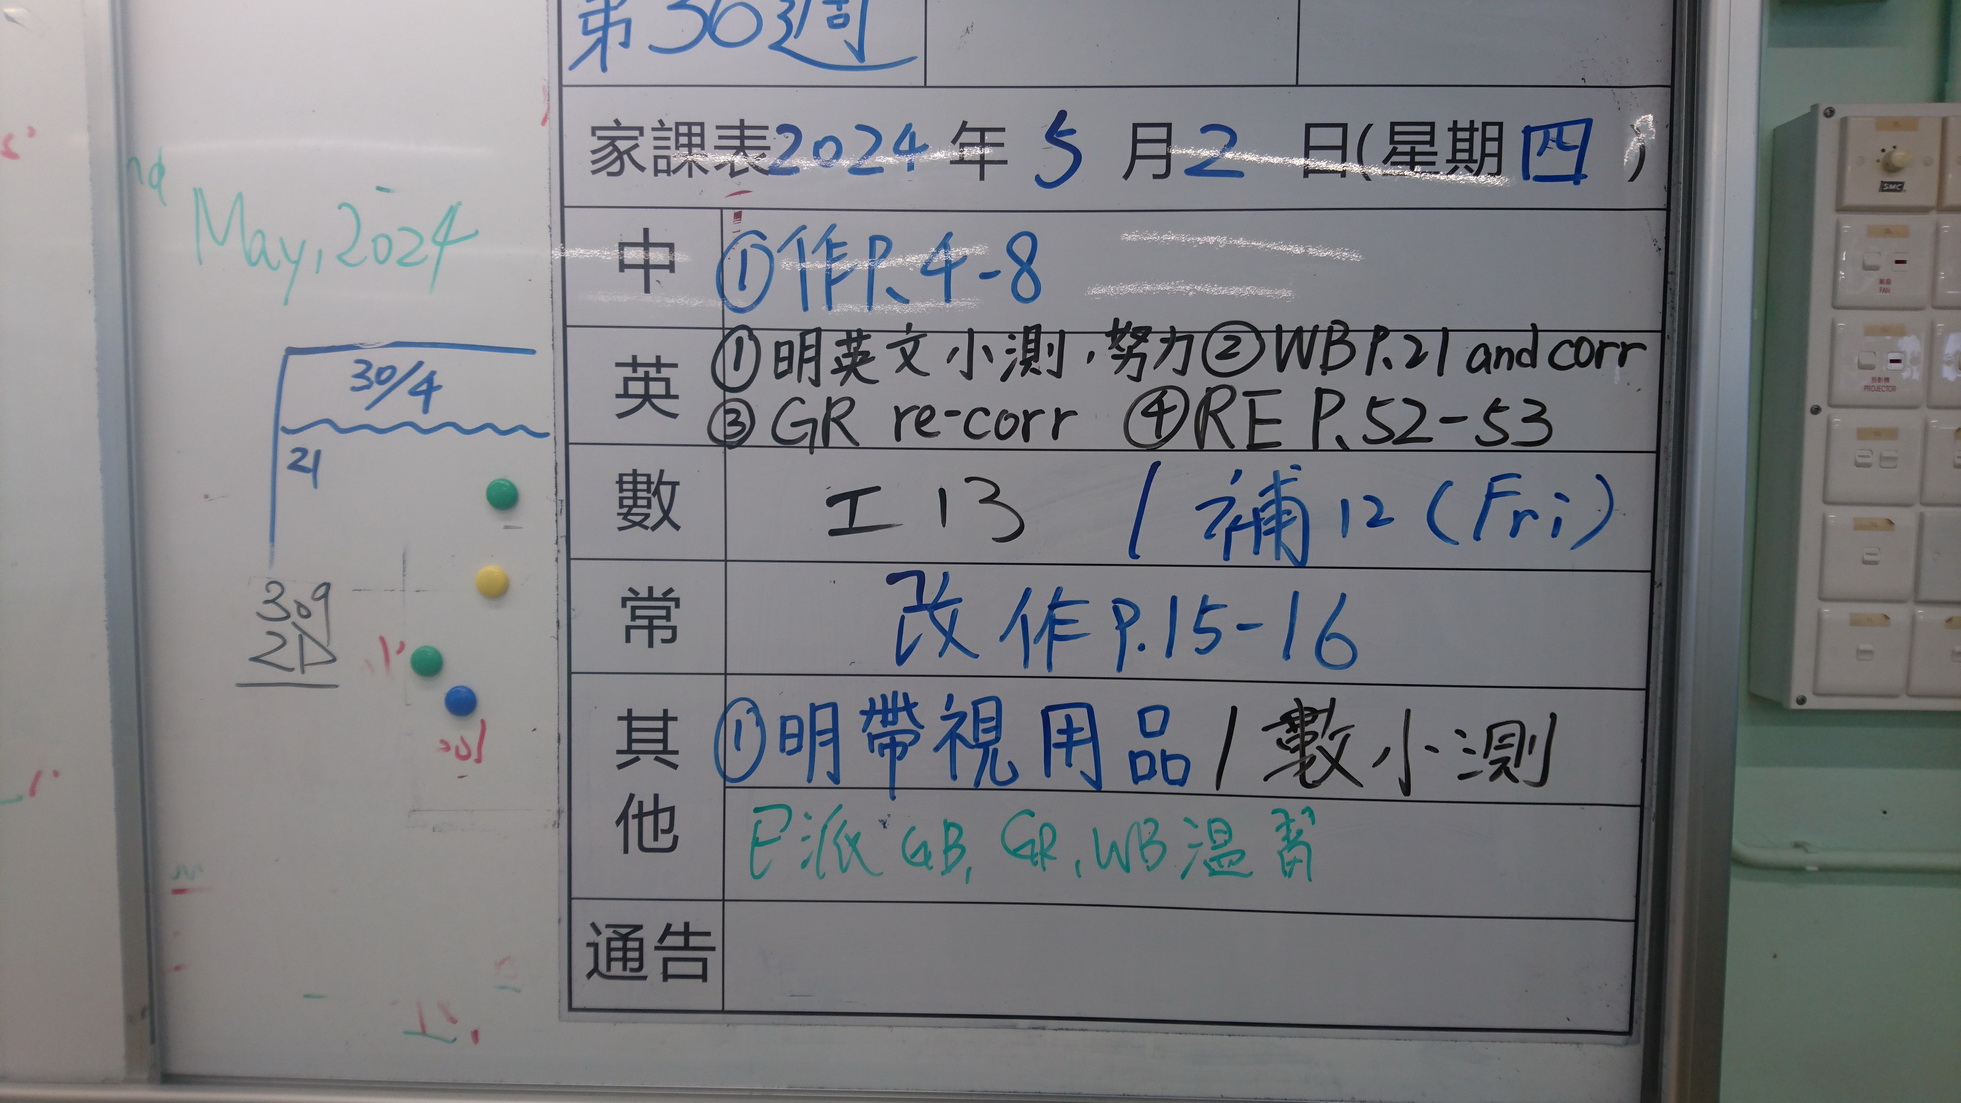 第36週
家課表2024年5月2日(星期四)
中
①作P.4-8
英
①明英文小測，努力②WB P.21 and corr
③GR re-corr ④RE P.52-53
數
工13 / 補12 (Fri)
常
改作P.15-16
其他
①明帶視用品 / 數小測
已派GB, GR, WB溫習
通告
May, 2024
30/4
21
309
SMC
FAN
PROJECTOR